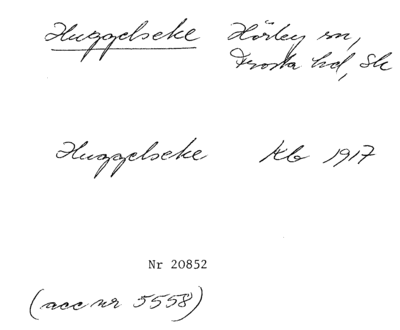 Huggelseke Hörby sn,
Frosta hd, Sk
Huggelseke Kb 1917
Nr 20852
(acc nr 5558)